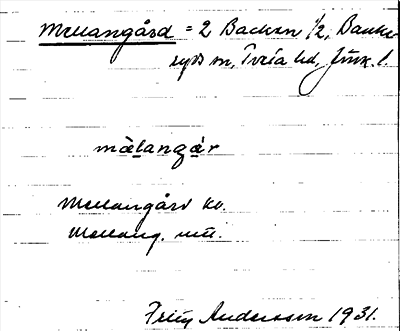 Mellangård = 2 Backen 1/2, Banke-
ryds sn, Tveta hd, Jönk. l.
mälangår
Mellangård kv.
Mellang. mti.
Fritz Andersson 1931.